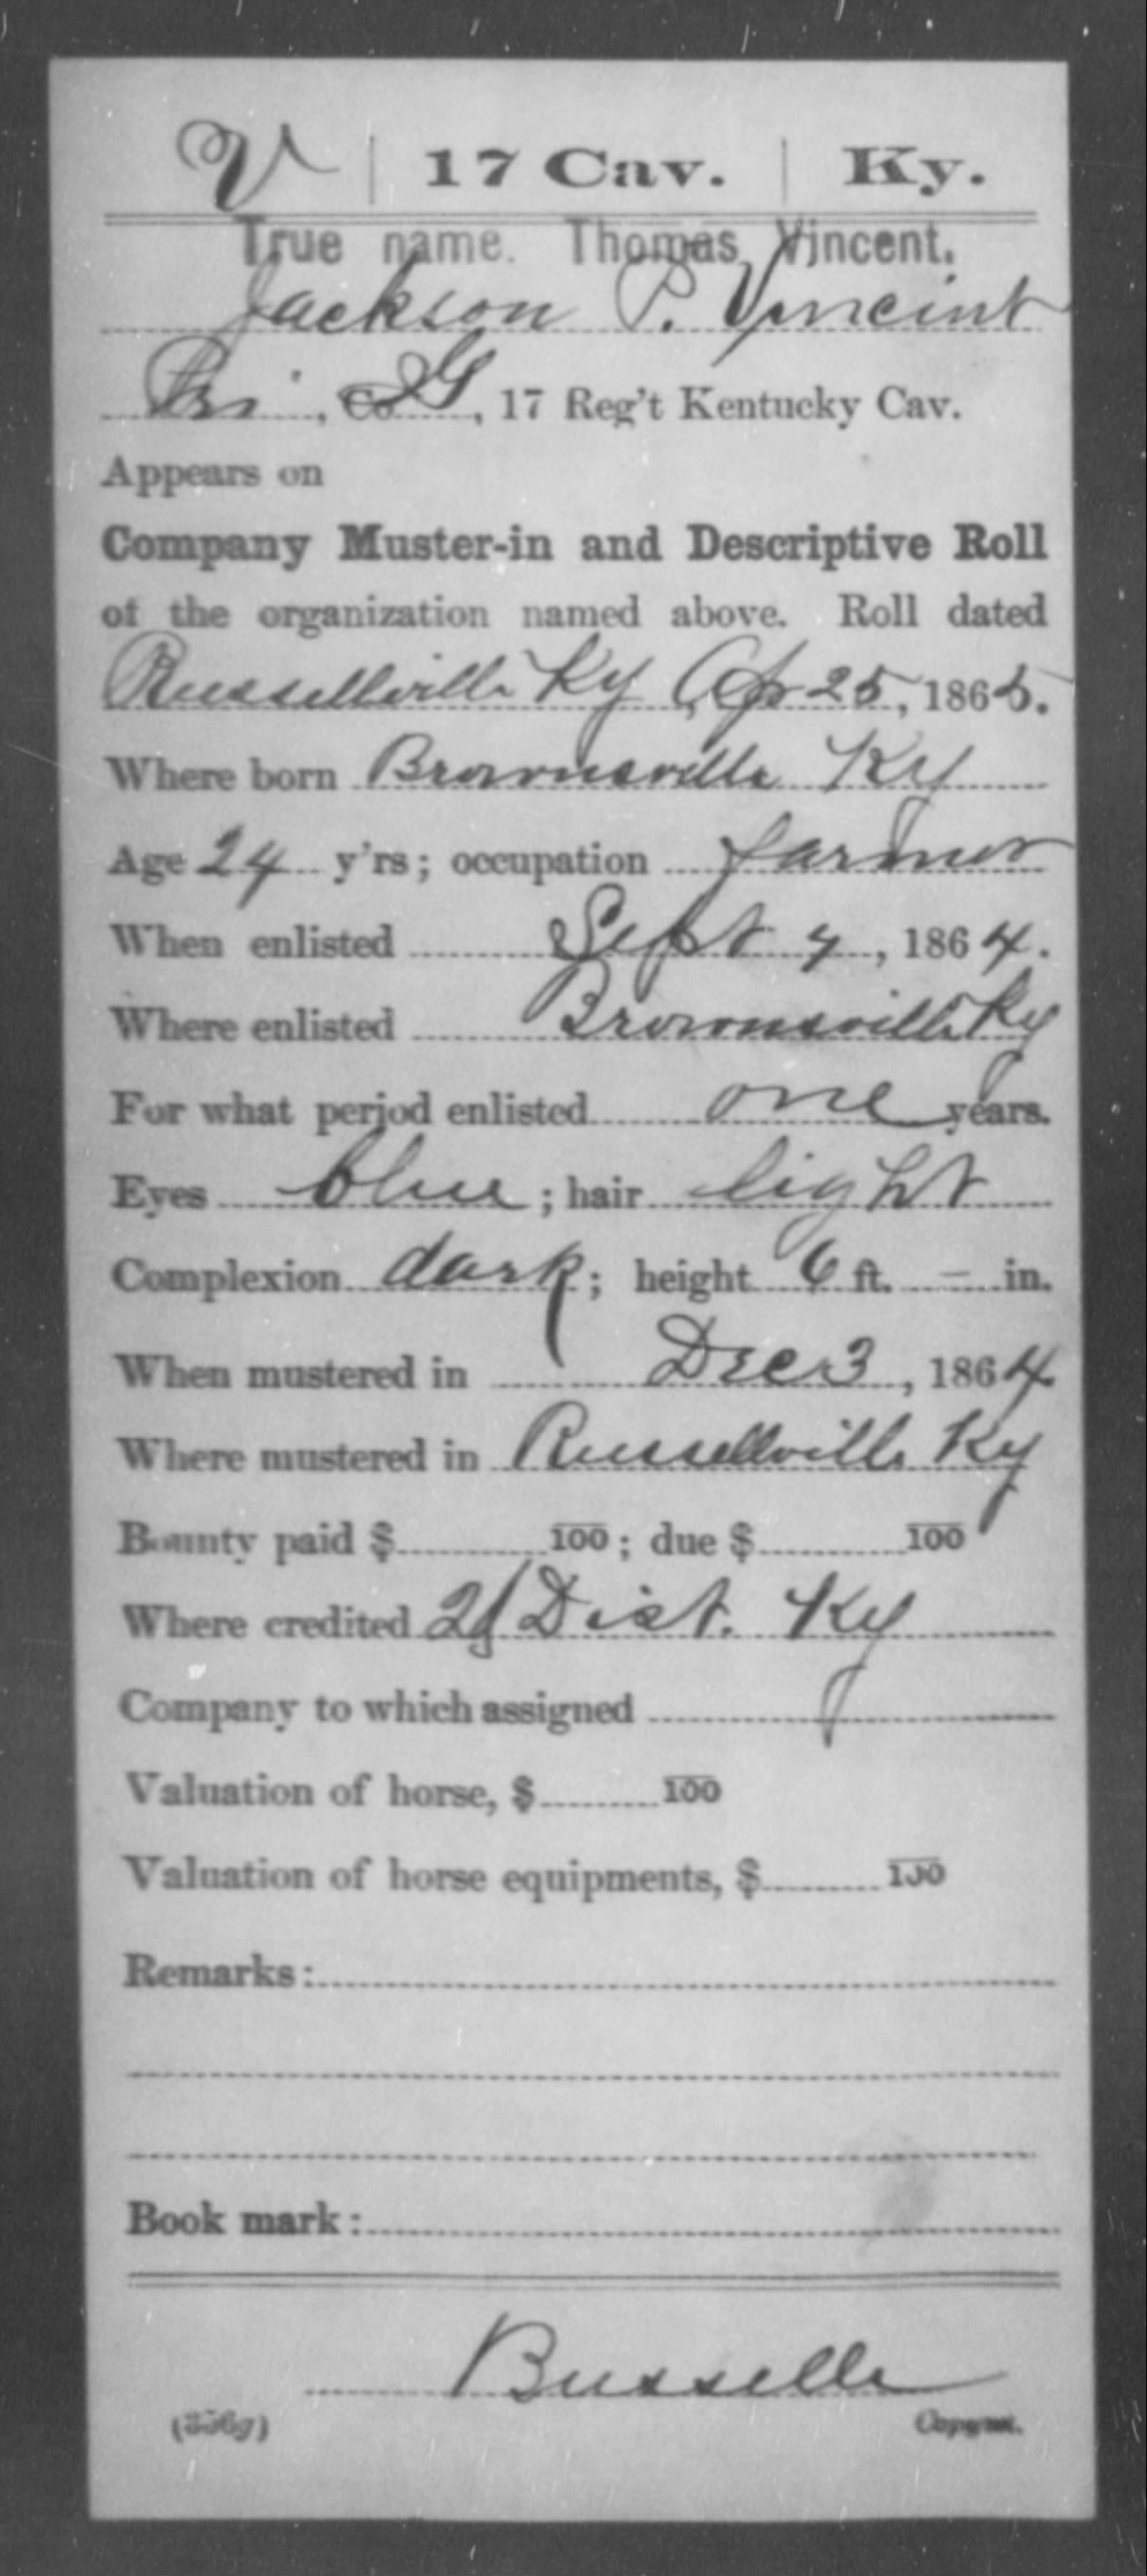 V | 17 Cav. | Ky.
True name. Thomas Vincent.
Jackson P. Vincint
Pri, Co G, 17 Reg't Kentucky Cav.
Appears on
Company Muster-in and Descriptive Roll
of the organization named above. Roll dated
Russellville Ky, Ap 25, 1865.
Where born Brownsville Ky
Age 24 y'rs; occupation farmer
When enlisted Sept 7, 1864.
Where enlisted Brownsville Ky
For what period enlisted one years.
Eyes blue; hair light
Complexion dark; height 6 ft. – in.
When mustered in Dec 3, 1864
Where mustered in Russellville Ky
Bounty paid $ 100; due $ 100
Where credited 2d Dist. Ky
Company to which assigned
Valuation of horse, $ 100
Valuation of horse equipments, $ 100
Remarks:
Book mark:
Busselle
(356g) Copyist.